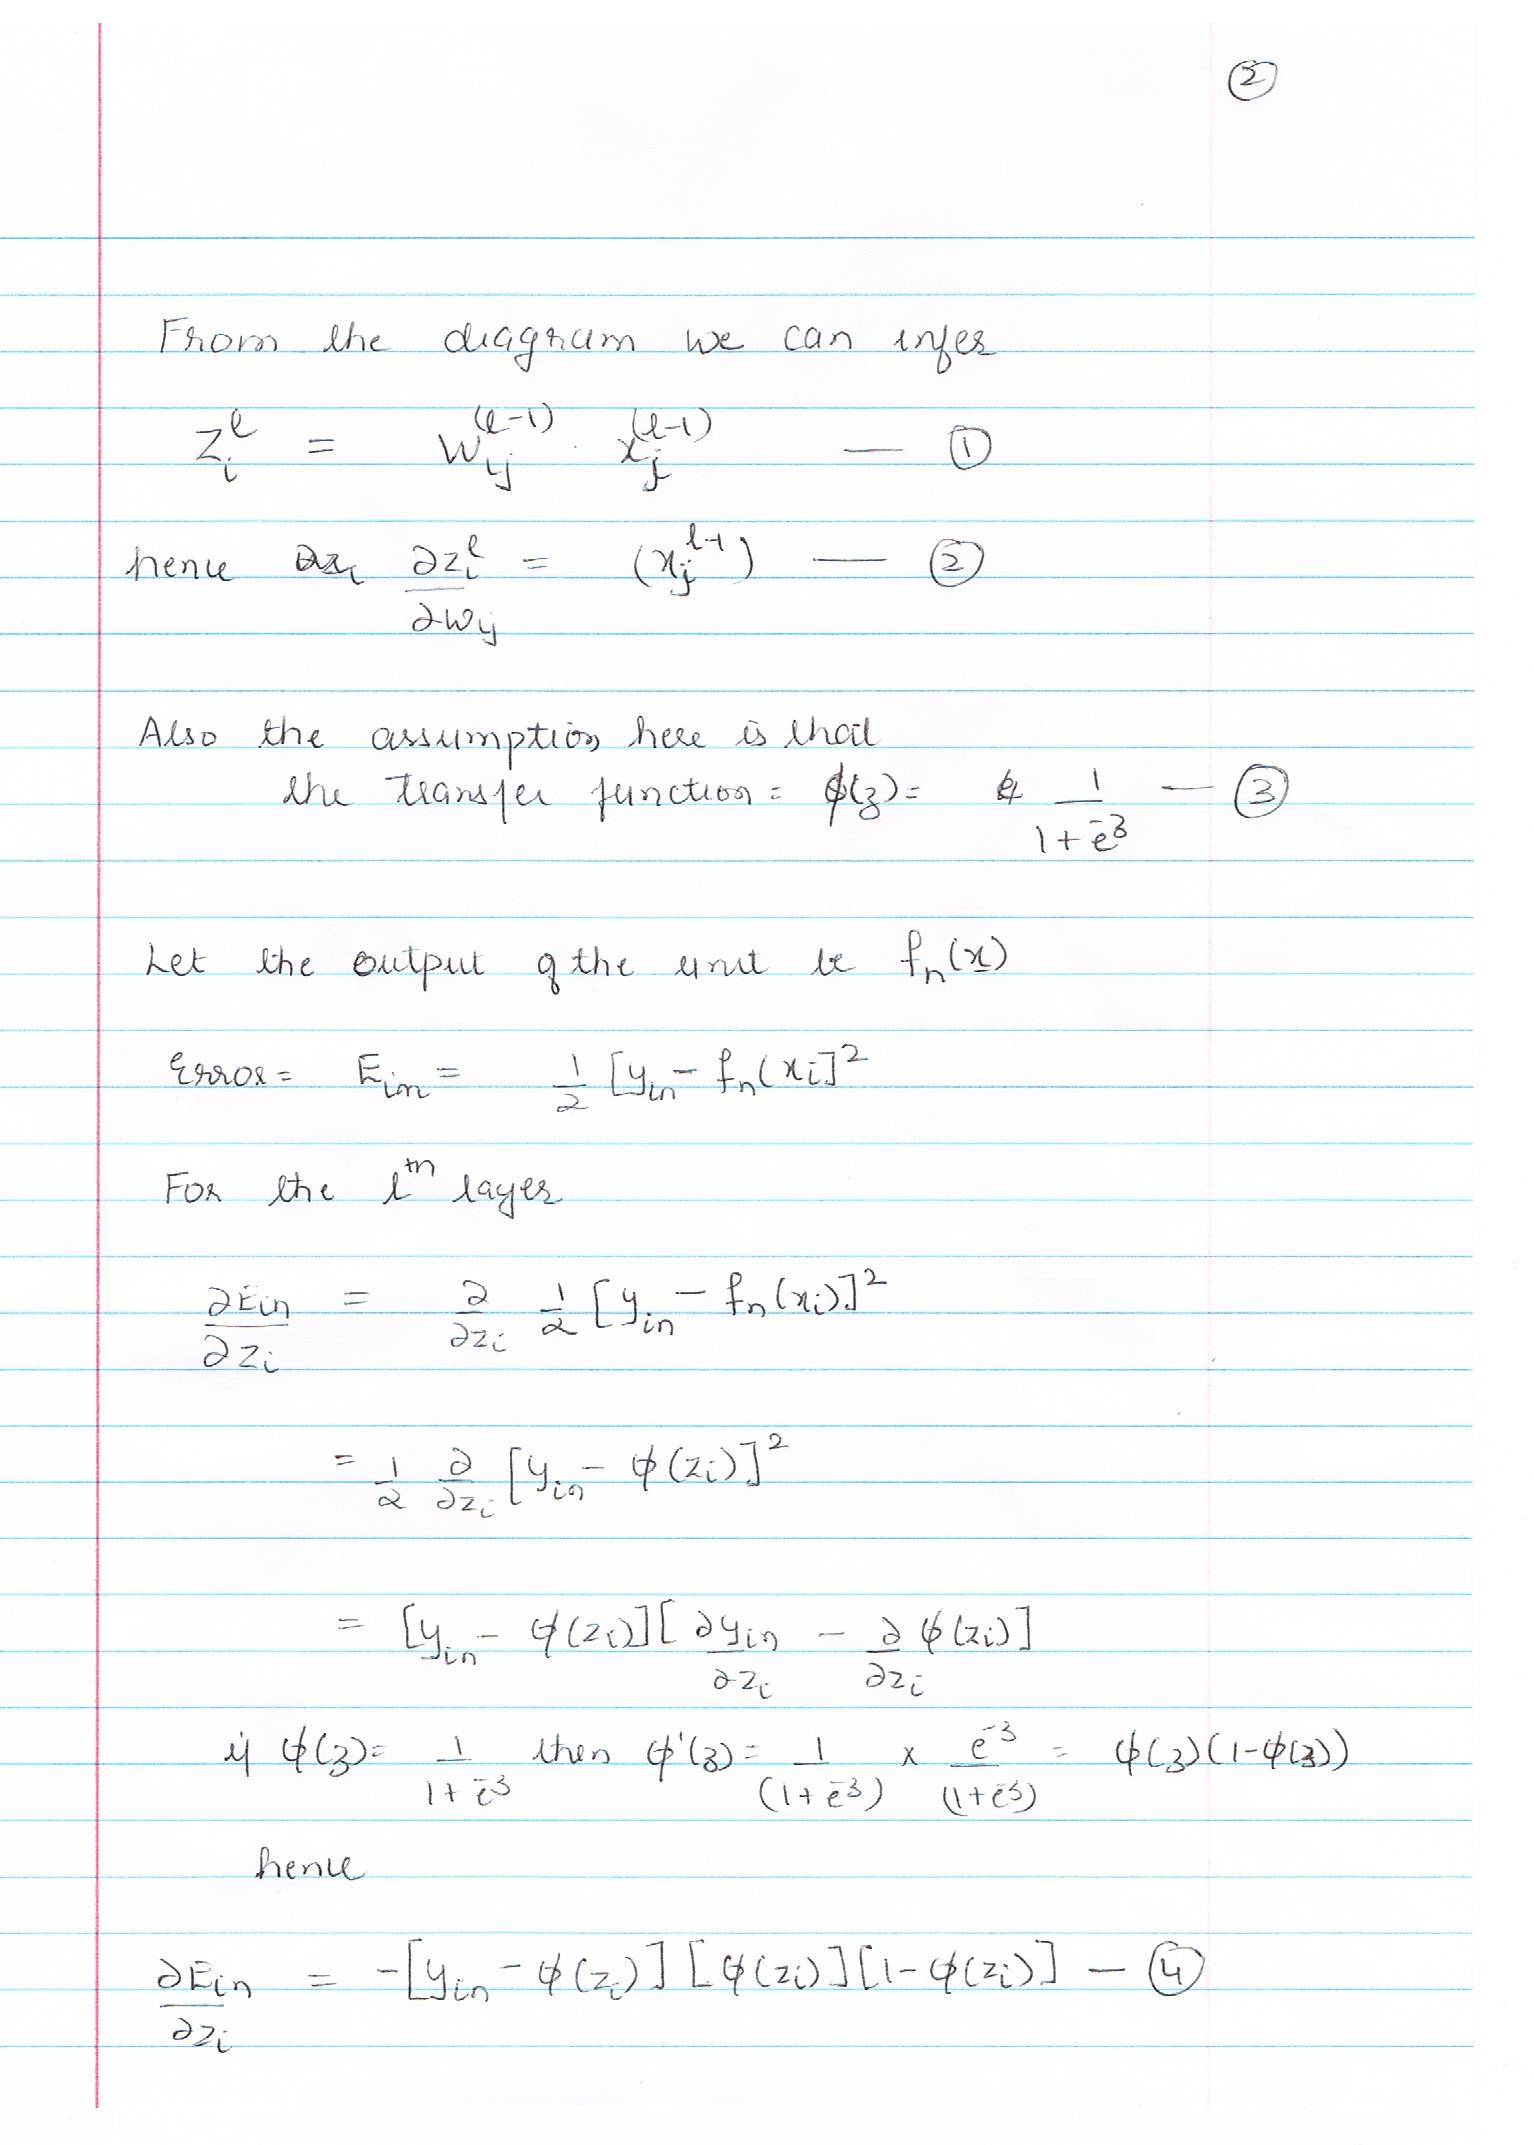 ②
From the diagram we can infer
z_i^l = w_ij^(l-1) . x_j^(l-1) — ①
hence ∂z_i^l / ∂w_ij = (x_j^{l-1}) — ②
Also the assumption here is that
the transfer function = ϕ(z) = 1 / (1 + e^-z) — ③
Let the output of the unit be f_n(x)
Error = E_in = 1/2 [y_in - f_n(x_i]^2
For the l^th layer
∂E_in / ∂z_i = ∂/∂z_i 1/2 [y_in - f_n(x_i)]^2
= 1/2 ∂/∂z_i [y_in - ϕ(z_i)]^2
= [y_in - ϕ(z_i)] [∂y_in/∂z_i - ∂/∂z_i ϕ(z_i)]
if ϕ(z) = 1 / (1 + e^-z) then ϕ'(z) = 1 / (1 + e^-z) × e^-z / (1 + e^-z) = ϕ(z)(1-ϕ(z))
hence
∂E_in / ∂z_i = -[y_in - ϕ(z_i)] [ϕ(z_i)] [1-ϕ(z_i)] — ④